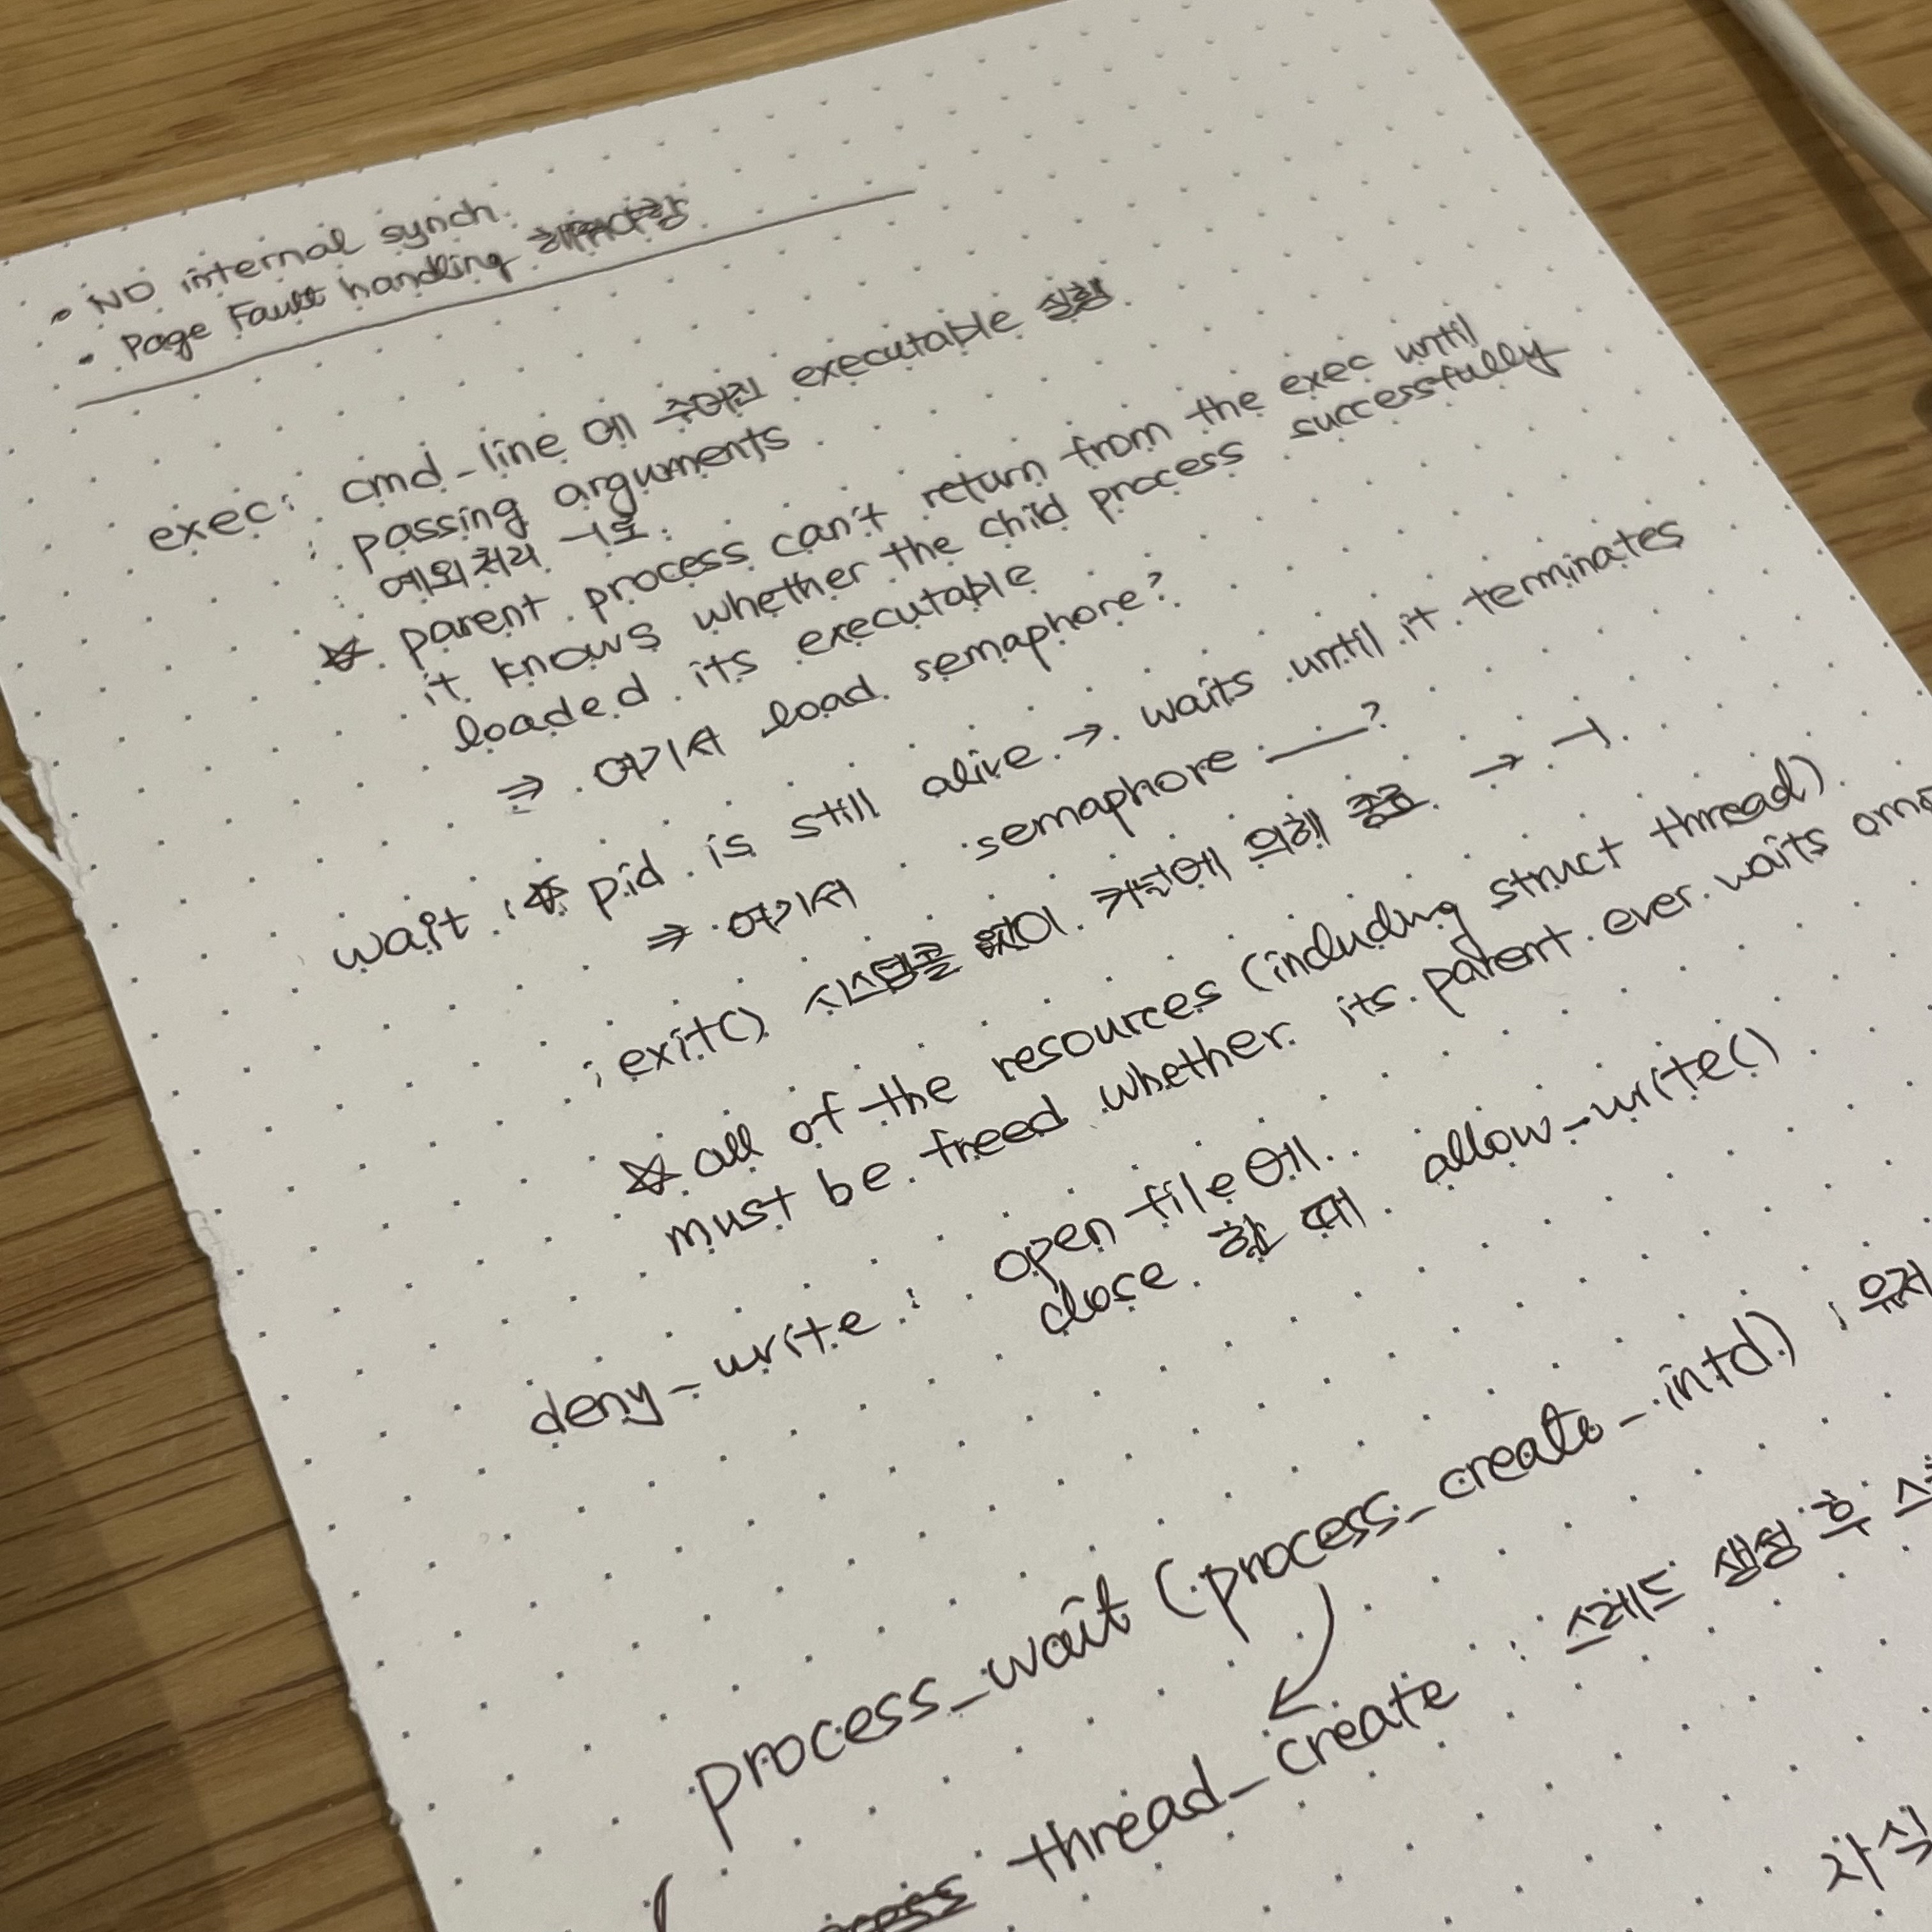 • NO internal synch.
• Page Fault handling 해야함
exec: cmd_line 에 주어진 executable 실행
: passing arguments
: 예외처리 -1로.
☆ parent process can't return from the exec until
it knows whether the child process successfully
loaded its executable
⇒ 여기서 load semaphore?
wait : ☆ pid is still alive → waits until it terminates
⇒ 여기서 semaphore ___?
; exit() 시스템콜 없이 커널에 의해 종료 → -1.
☆ all of the resources (including struct thread)
must be freed whether its parent ever waits
deny_write : open file에..
close 할 때 allow_write()
process_wait (process_create_initd) ; 유저
thread_create : 스레드 생성 후
자식